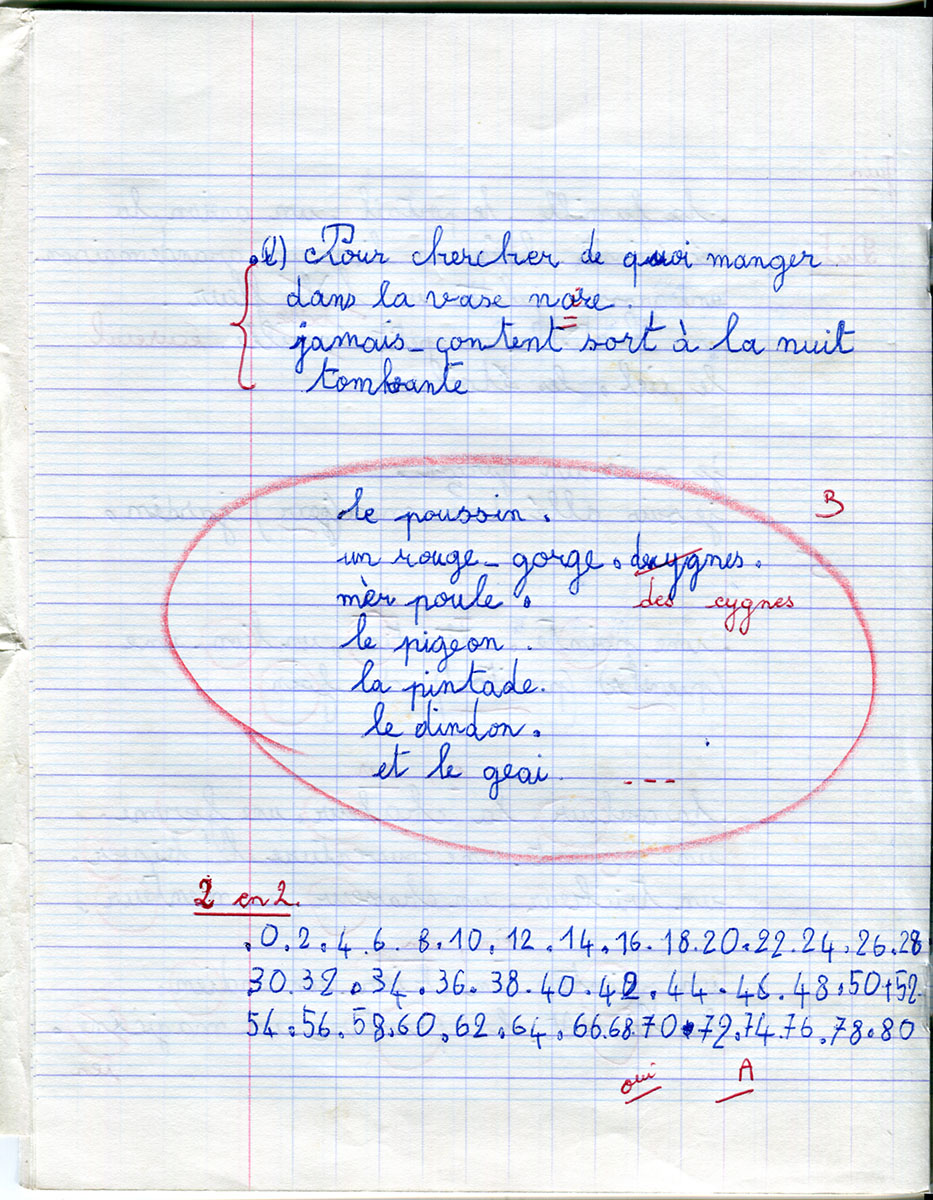 d) Pour chercher de quoi manger
dans la vase noire.
jamais-content sort à la nuit
tombante
le poussin. B
un rouge-gorge. decygnes.
mèr poule. des cygnes
le pigeon.
la pintade.
le dindon.
et le geai. ---
2 en 2.
.0.2.4.6.8.10.12.14.16.18.20.22.24.26.28
30.32.34.36.38.40.42.44.46.48.50+52.
54.56.58.60.62.64.66.68.70.72.74.76.78.80
oui A